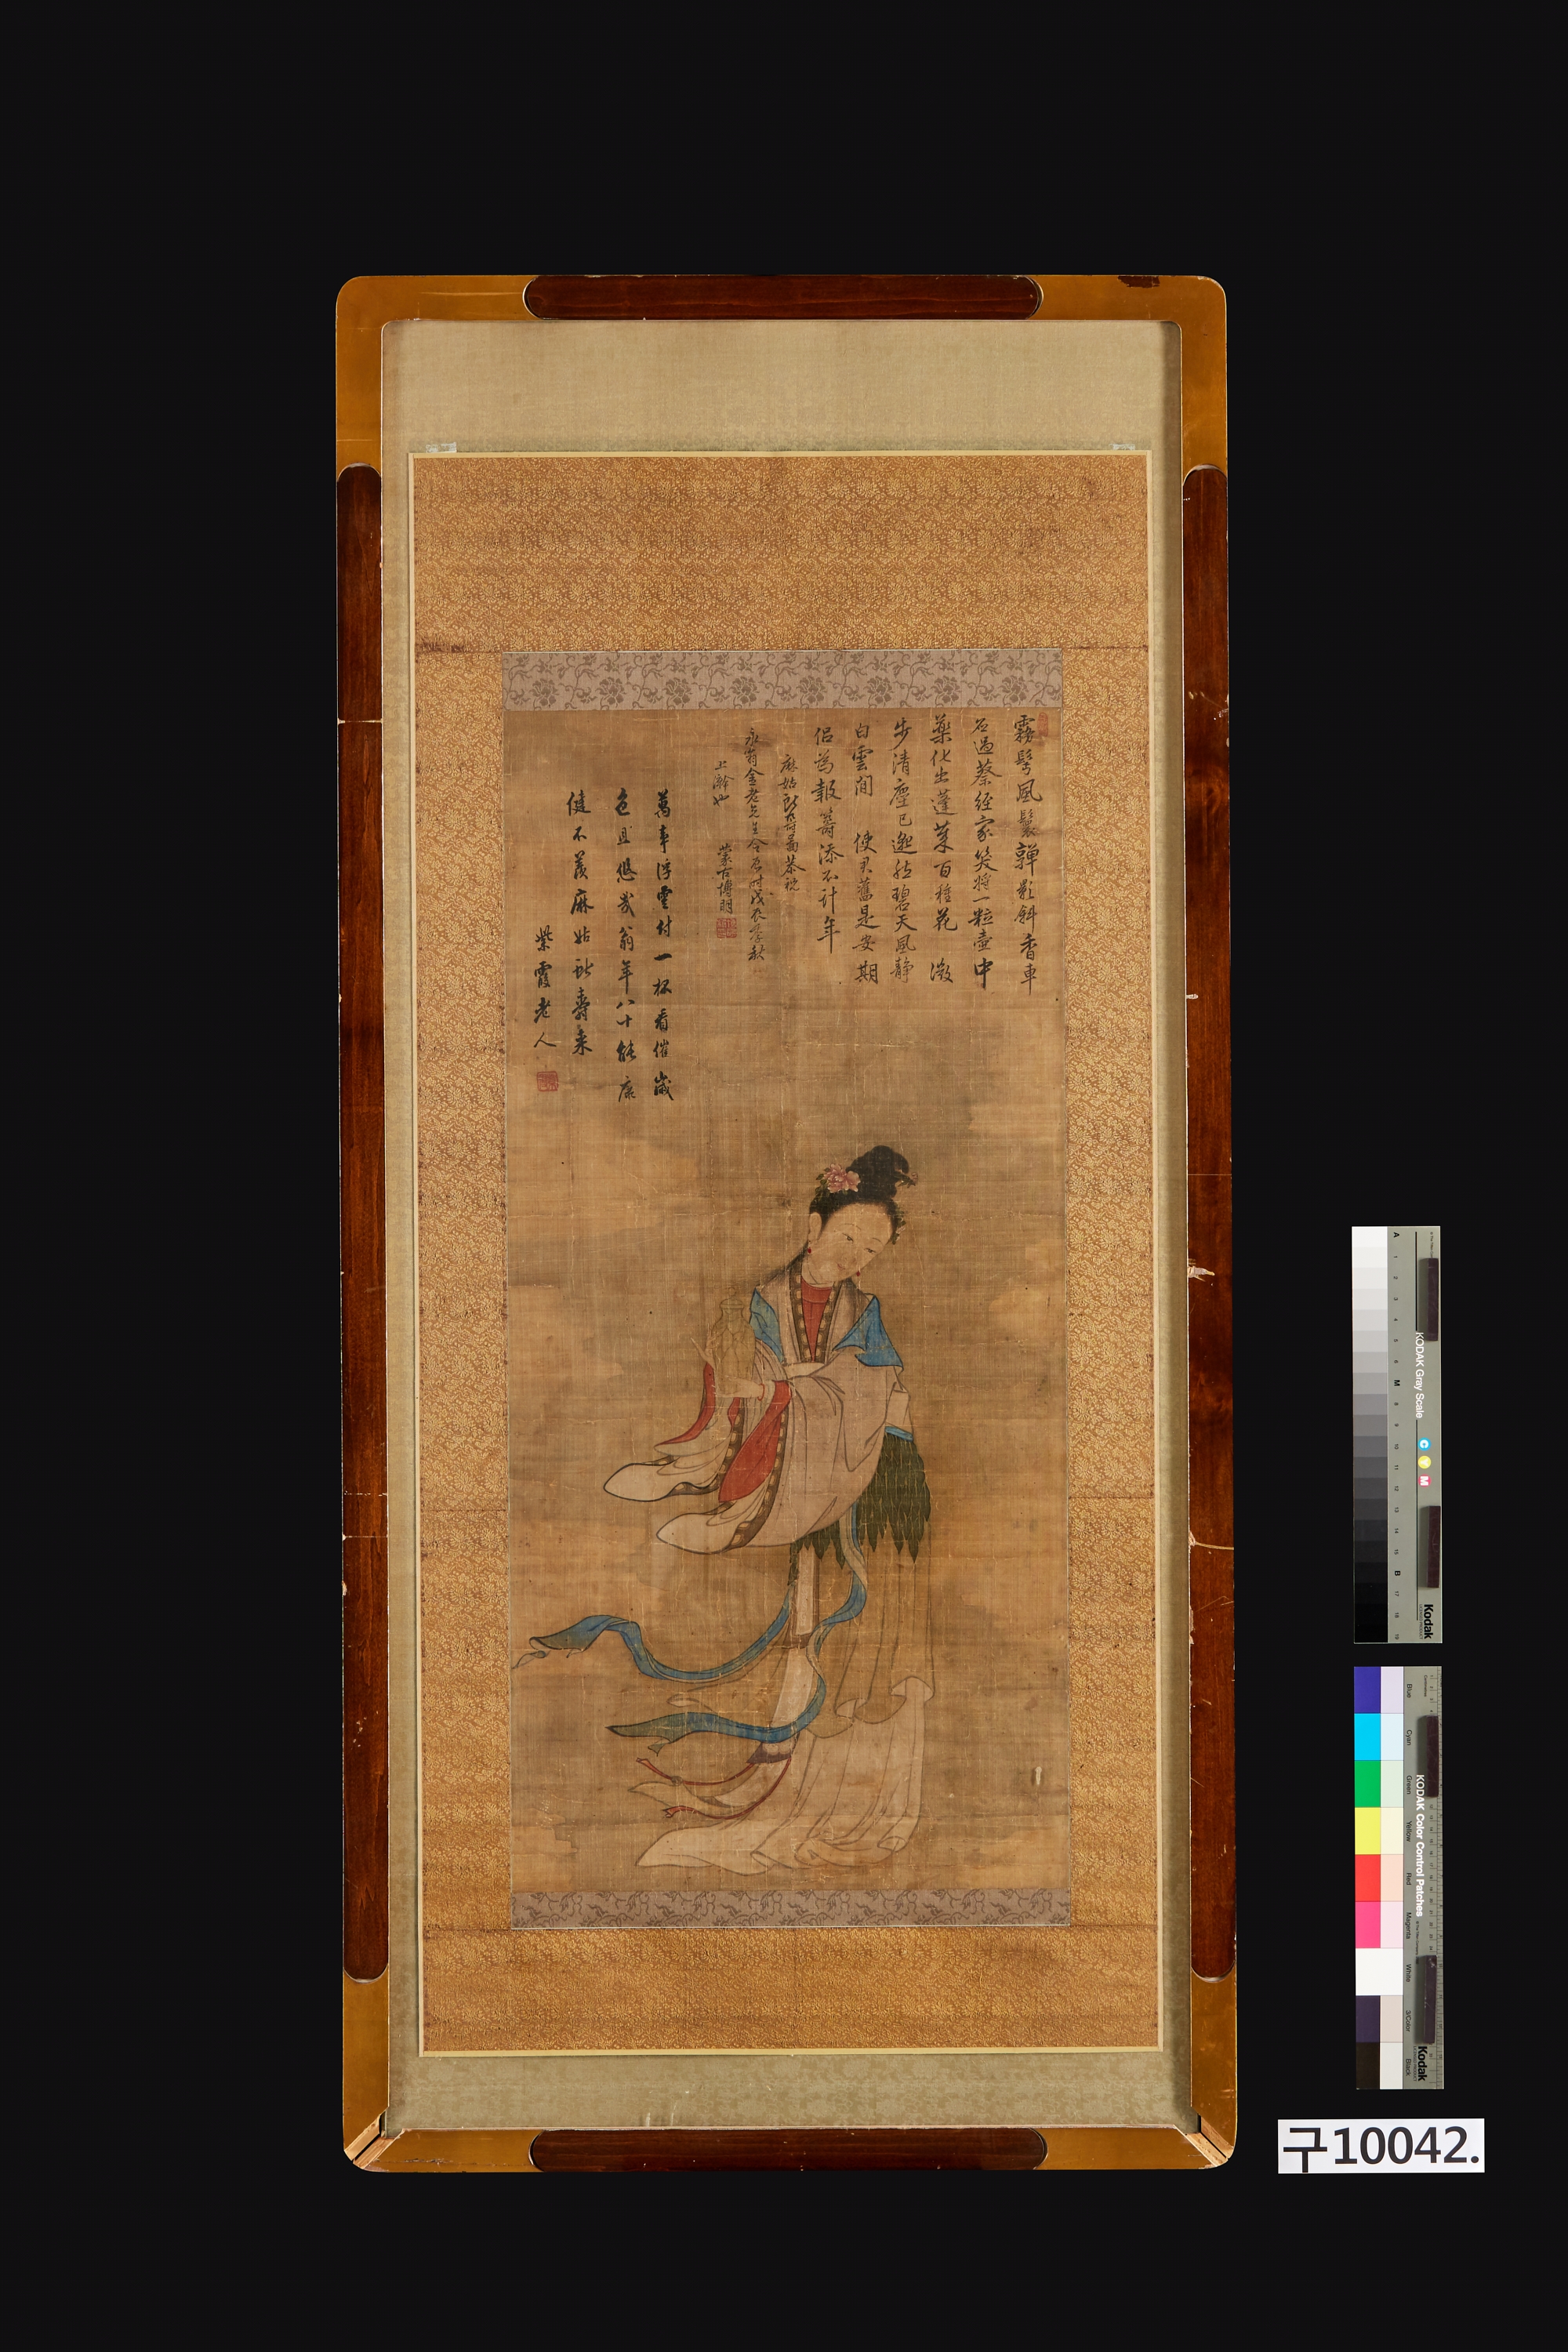 霧髩風鬟嚲影斜香車
石過蔡經家笑將一粒壺中
藥化出蓬萊百種花 激
步清塵已邈然碧天風靜
白雲間 使君舊是安期
侶為報籌添不計年
麻姑獻壽圖恭祝
永翁金老先生令辰時戊 季秋
上澣也
蒙古博明
萬事浮雲付一杯看催歲
色且悠哉翁年八十能康
健不羨麻姑獻壽來
紫霞老人
KODAK Gray Scale
C Y M
Kodak
A 1 2 3 4 5 6 M 8 9 10 11 12 13 14 15 B 17 18 19
KODAK Color Control Patches
Blue Cyan Green Yellow Red Magenta White 3/Color Black
Kodak
구10042.